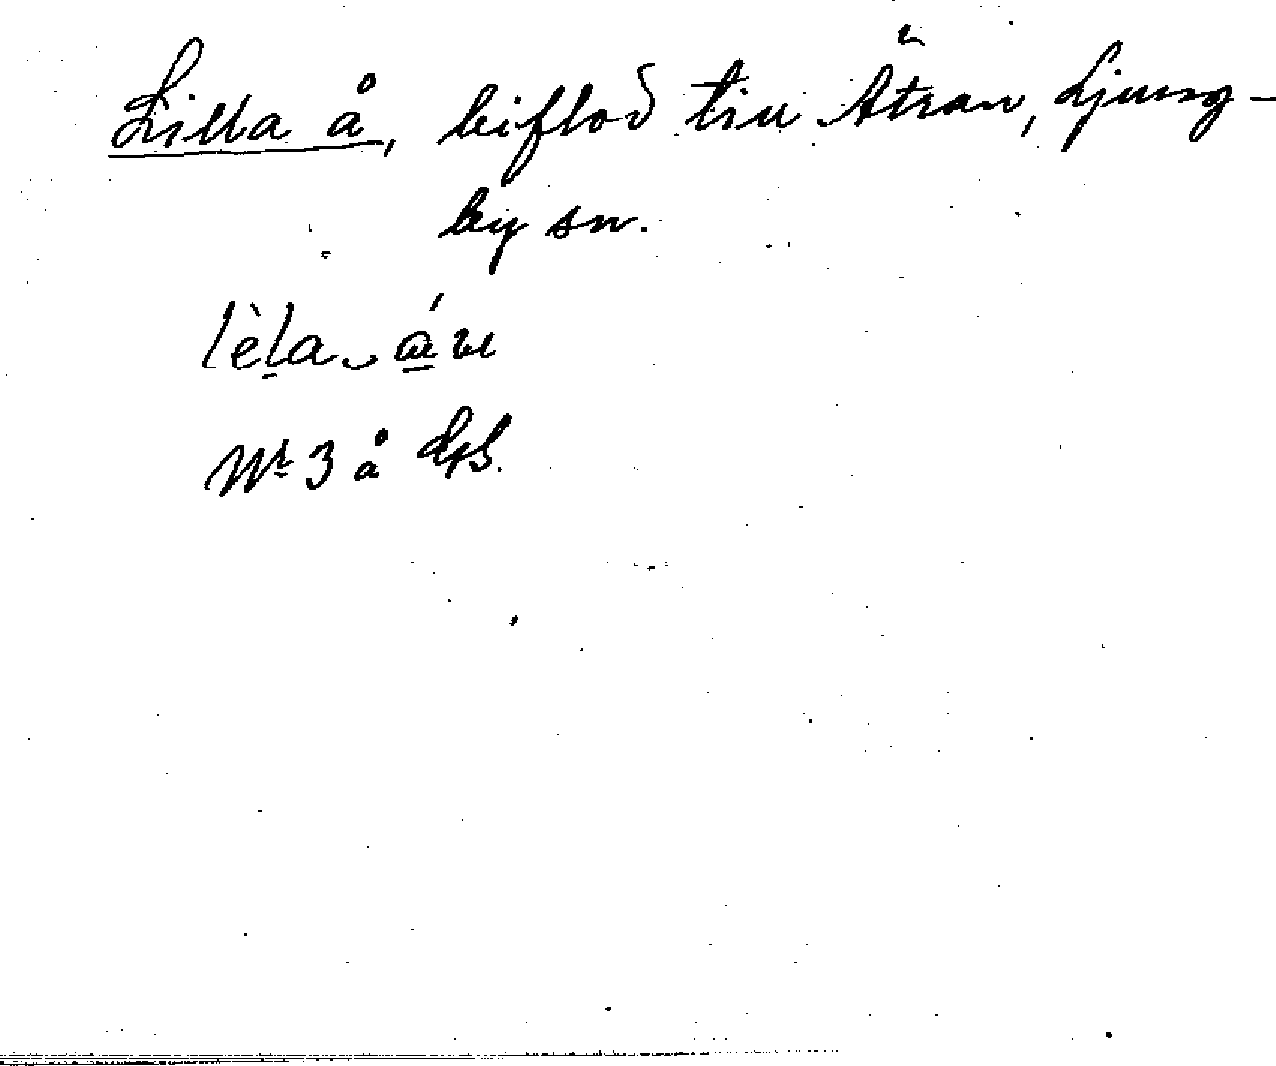 Lilla å, biflod till Ätran, Ljung-
by sn.
lèla
Nr 3 å